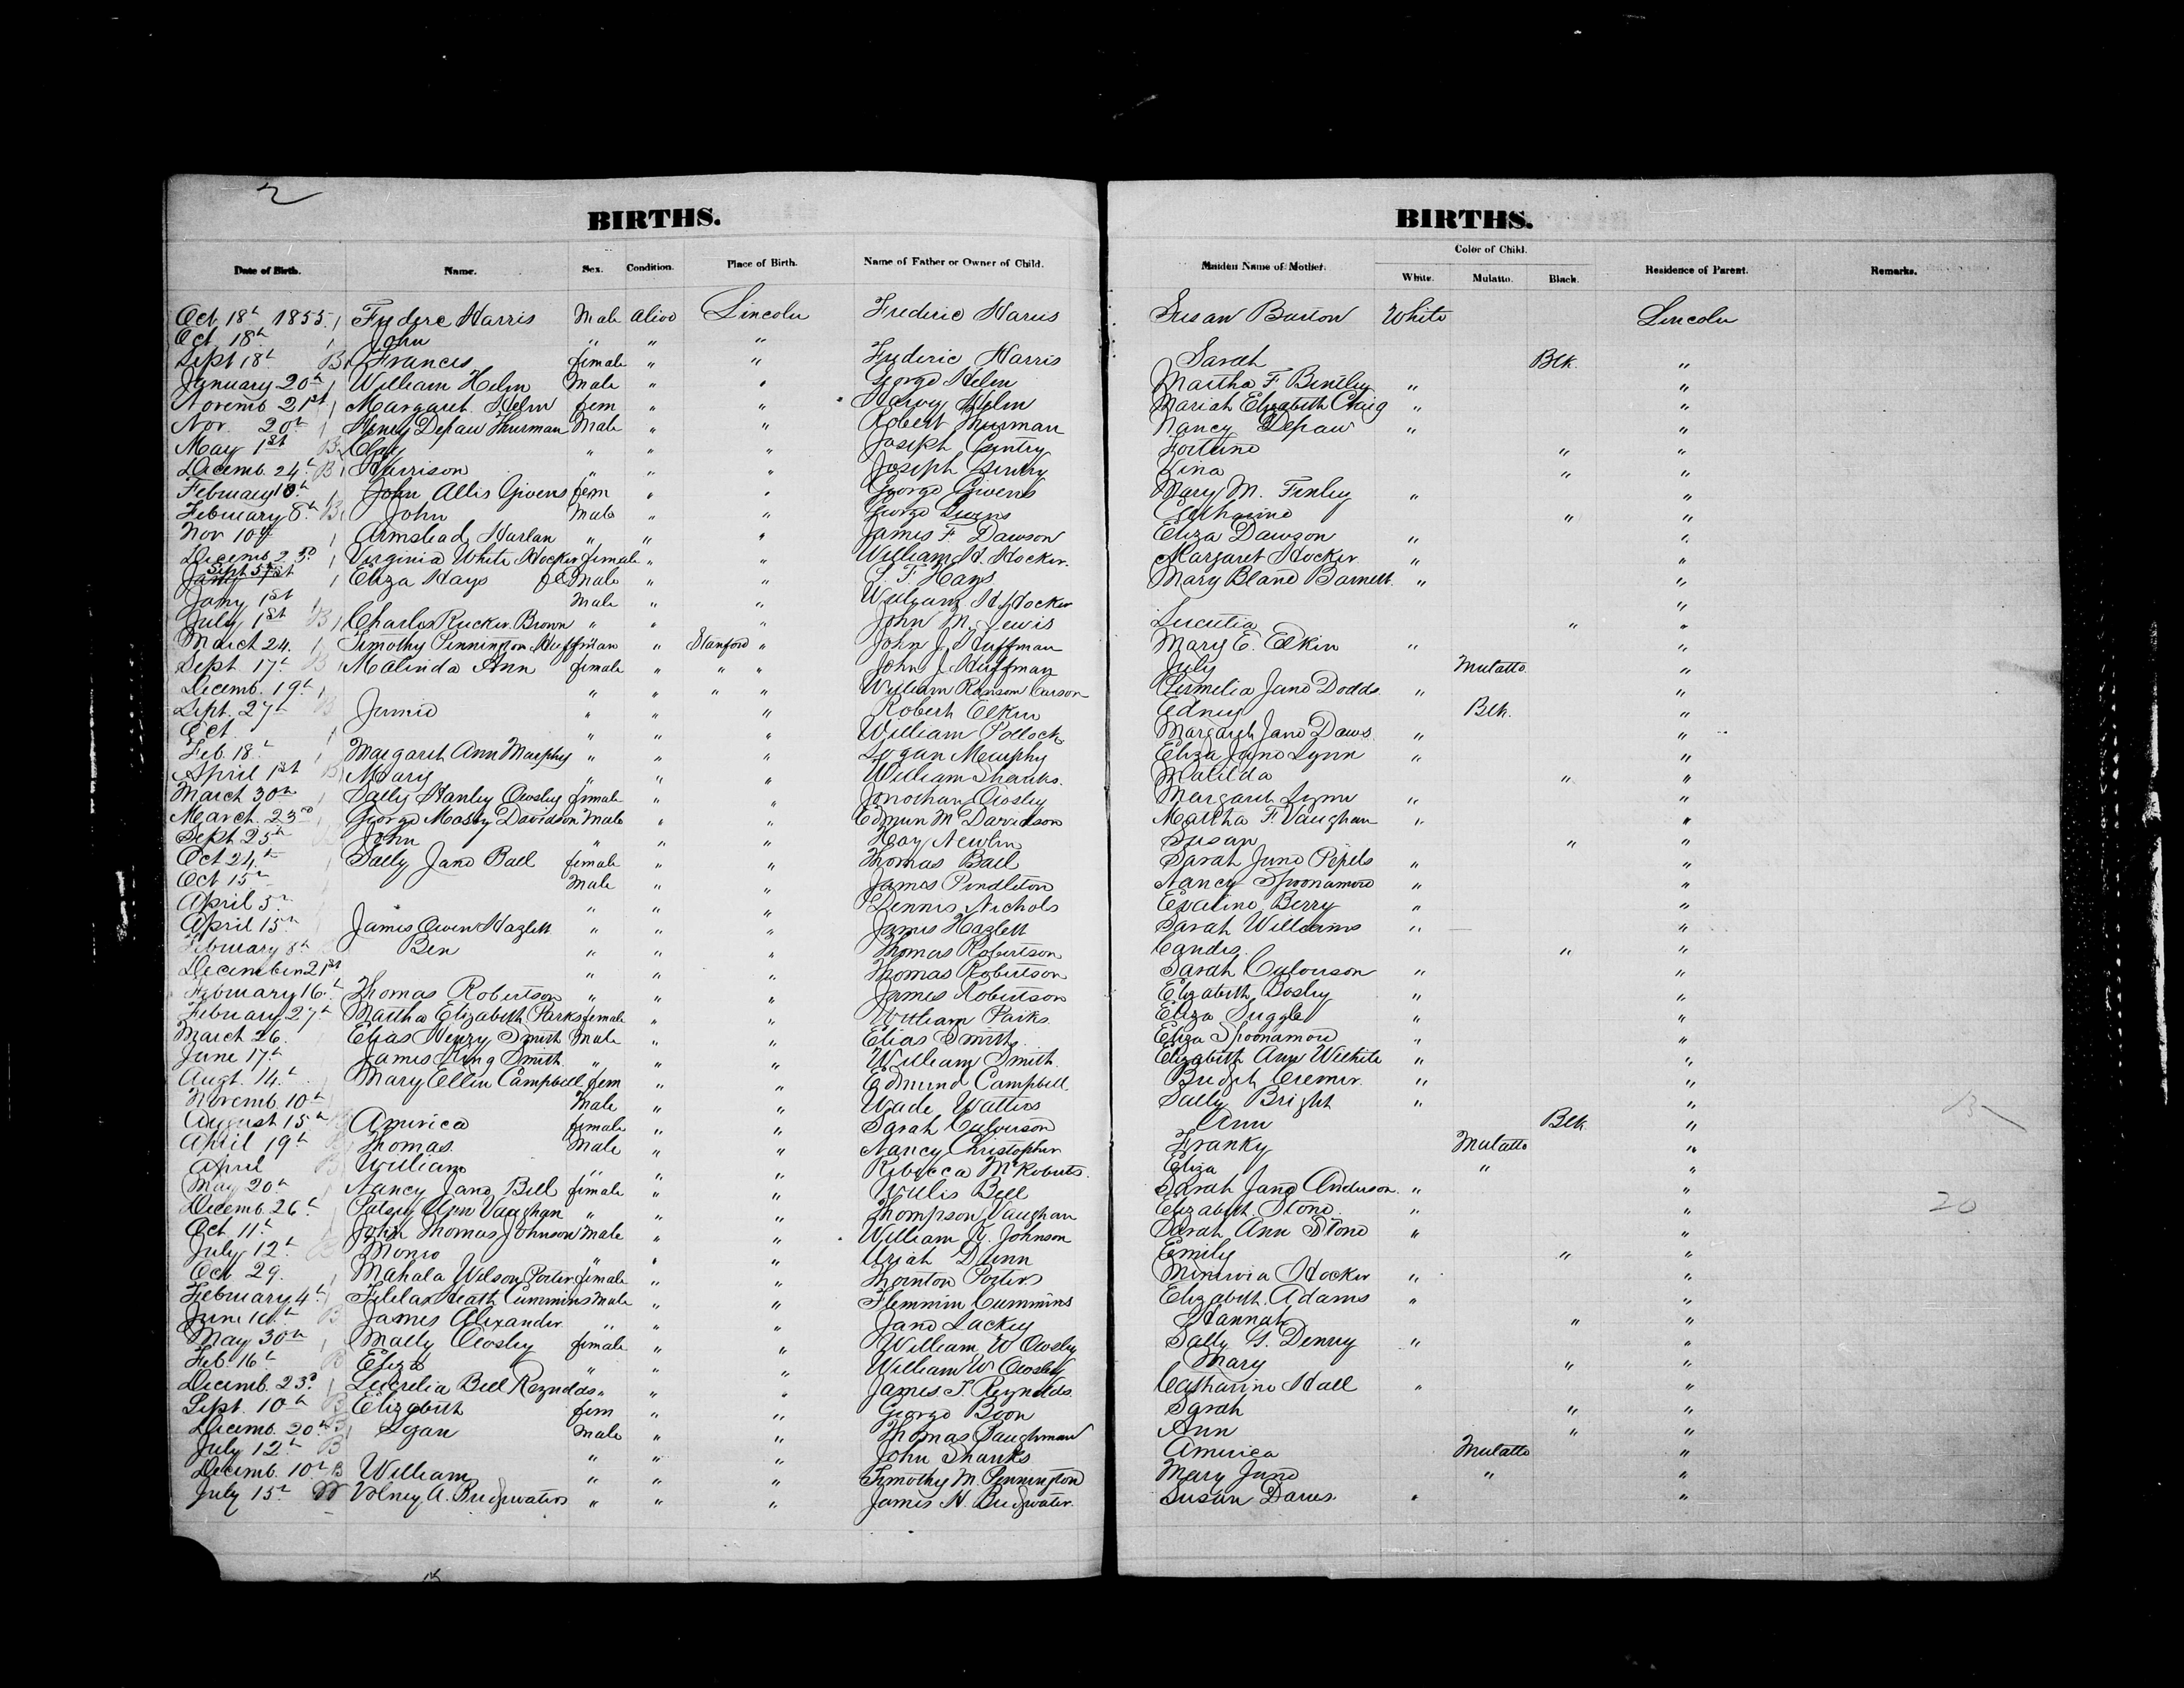 2
BIRTHS. BIRTHS.
Date of Birth. Name. Sex. Condition. Place of Birth. Name of Father or Owner of Child. Maiden Name of Mother. Color of Child. White. Mulatto. Black. Residence of Parent. Remarks.
Oct 18th 1855 Frederic Harris Male alive Lincoln Frederic Harris Susan Burton White Lincoln
Oct 18th John " " "
Sept 18th B Frances female " " Frederic Harris Sarah Blk. "
January 20th William Helm Male " " George Helm Martha F. Bentley " "
Novemb. 21st Margaret Helm fem " " Harvy Helm Mariah Elizabeth Craig " "
Nov. 20th Henry Depaw Thurman Male " " Robert Thurman Nancy Depaw " "
May 1st B Clay " " " Joseph Gentry Fortune " "
Decemb. 24th B Harrison " " " Joseph Gentry Lina " "
February 10th John Allis Givens fem " " George Givens Mary M. Finley " "
February 8th B John Male " " George Givens Catharine " "
Nov 10th Armstead Harlan " " " James F Dawson Eliza Dawson " "
Decemb 23d Virginia White Hocker female " " William H. Hocker. Margaret Hocker " "
Sept 5th Eliza Hays feMale " " S. T. Hays Mary Bland Barnett " "
Jany 1st Male " " William H Hocker "
July 1st B Charles Rucker Brown " " " John M. Lewis Lucretia " "
March 24. Timothy Pennington Huffman " " Stanford " John J. Huffman Mary E. Elkin " "
Sept 17th B Malinda Ann female " " " John J. Huffman July Mulatto "
Decemb. 19th " " " " William Ranson Carson Permelia Jane Dodds " "
Sept. 27th B Jennie " " " Robert Elkin Edney Blk. "
Oct. " " " William Pollock Margaret Jane Daws " "
Feb. 18th Margaret Ann Murphy " " " Logan Murphy Eliza Jane Lynn " "
April 1st B Mary " " " William Shanks. Matilda " "
March 30th Sally Hanley Owsley female " " Jonothan Owsley Margaret Lynn " "
March. 23rd George Massy Davidson Male " " Edmun McDavidson Martha F. Vaughan " "
Sept. 25th John " " " Hay Newlin Susan " "
Oct 24th Sally Jane Ball female " " Thomas Ball Sarah Jane Pepels " "
Oct 15th Male " " James Pendleton Nancy Spoonamore " "
April 5th " " " Dennis Nichols Evaline Berry " "
April 15th James Owen Hazlett " " " James Hazlett Sarah Williams " "
February 8th Ben " " " Thomas Robertson Candis " "
December 21st " " " Thomas Robertson Sarah Culverson " "
February 16th Thomas Robertson " " " James Robertson Elizabeth Bosley " "
February 27th Martha Elizabeth Parks female " " William Parks Eliza Suggle " "
March 26. Elias Henry Smith Male " " Elias Smith Eliza Spoonamore " "
June 17th James King Smith " " " William Smith Elizabeth Ann Wilhite " "
Augt. 14th Mary Ellen Campbell fem " " Edmund Campbell. Bridget Cremer " "
Novemb. 10th Male " " Wade Watters Sally Bright " "
August 15th America female " " Sarah Culverson Ann Blk "
April 19th Thomas. Male " " Nancy Christopher Franky Mulatto "
April B William " " " Rebecca McRoberts. Eliza " "
May 20th Nancy Jane Bell female " " Willis Bell Sarah Jane Anderson. " "
Decemb. 26th Patsey Ann Vaughan " " " Thompson Vaughan Elizabeth Stone " " 20
Oct 11th John Thomas Johnson Male " " William Johnson Sarah Ann Stone " "
July 12th Monro " " " Uriah Dunn Emily " "
Oct 29. Mahala Wilson Porter female " " Thornton Porter Minervia Hocker " "
February 4th Heath Cummins Male " " Flemmin Cummins Elizabeth Adams " "
June B James Alexander " " " Jane Lackey Hannah " "
May 30th Mally Owsley female " " William W Owsley Sally G. Denny " "
Feb. 16th B Eliza " " " William W. Owsley Mary " "
Decemb. 23d Lucrelia Bell Reynolds " " " James T. Reynolds. Catharine Hall " "
Sept. 10th B Elizabeth fem " " George Boon Sarah " "
Decemb. 20th B Logan Male " " Thomas Baughman Ann " "
July 12th B " " " John Shanks America Mulatto "
Decemb. 10th B William " " " Timothy M. Pennington Mary Jane " "
July 15th W Volney A. Bridgwaters " " " James H. Bridgwater. Susan Daws. " "